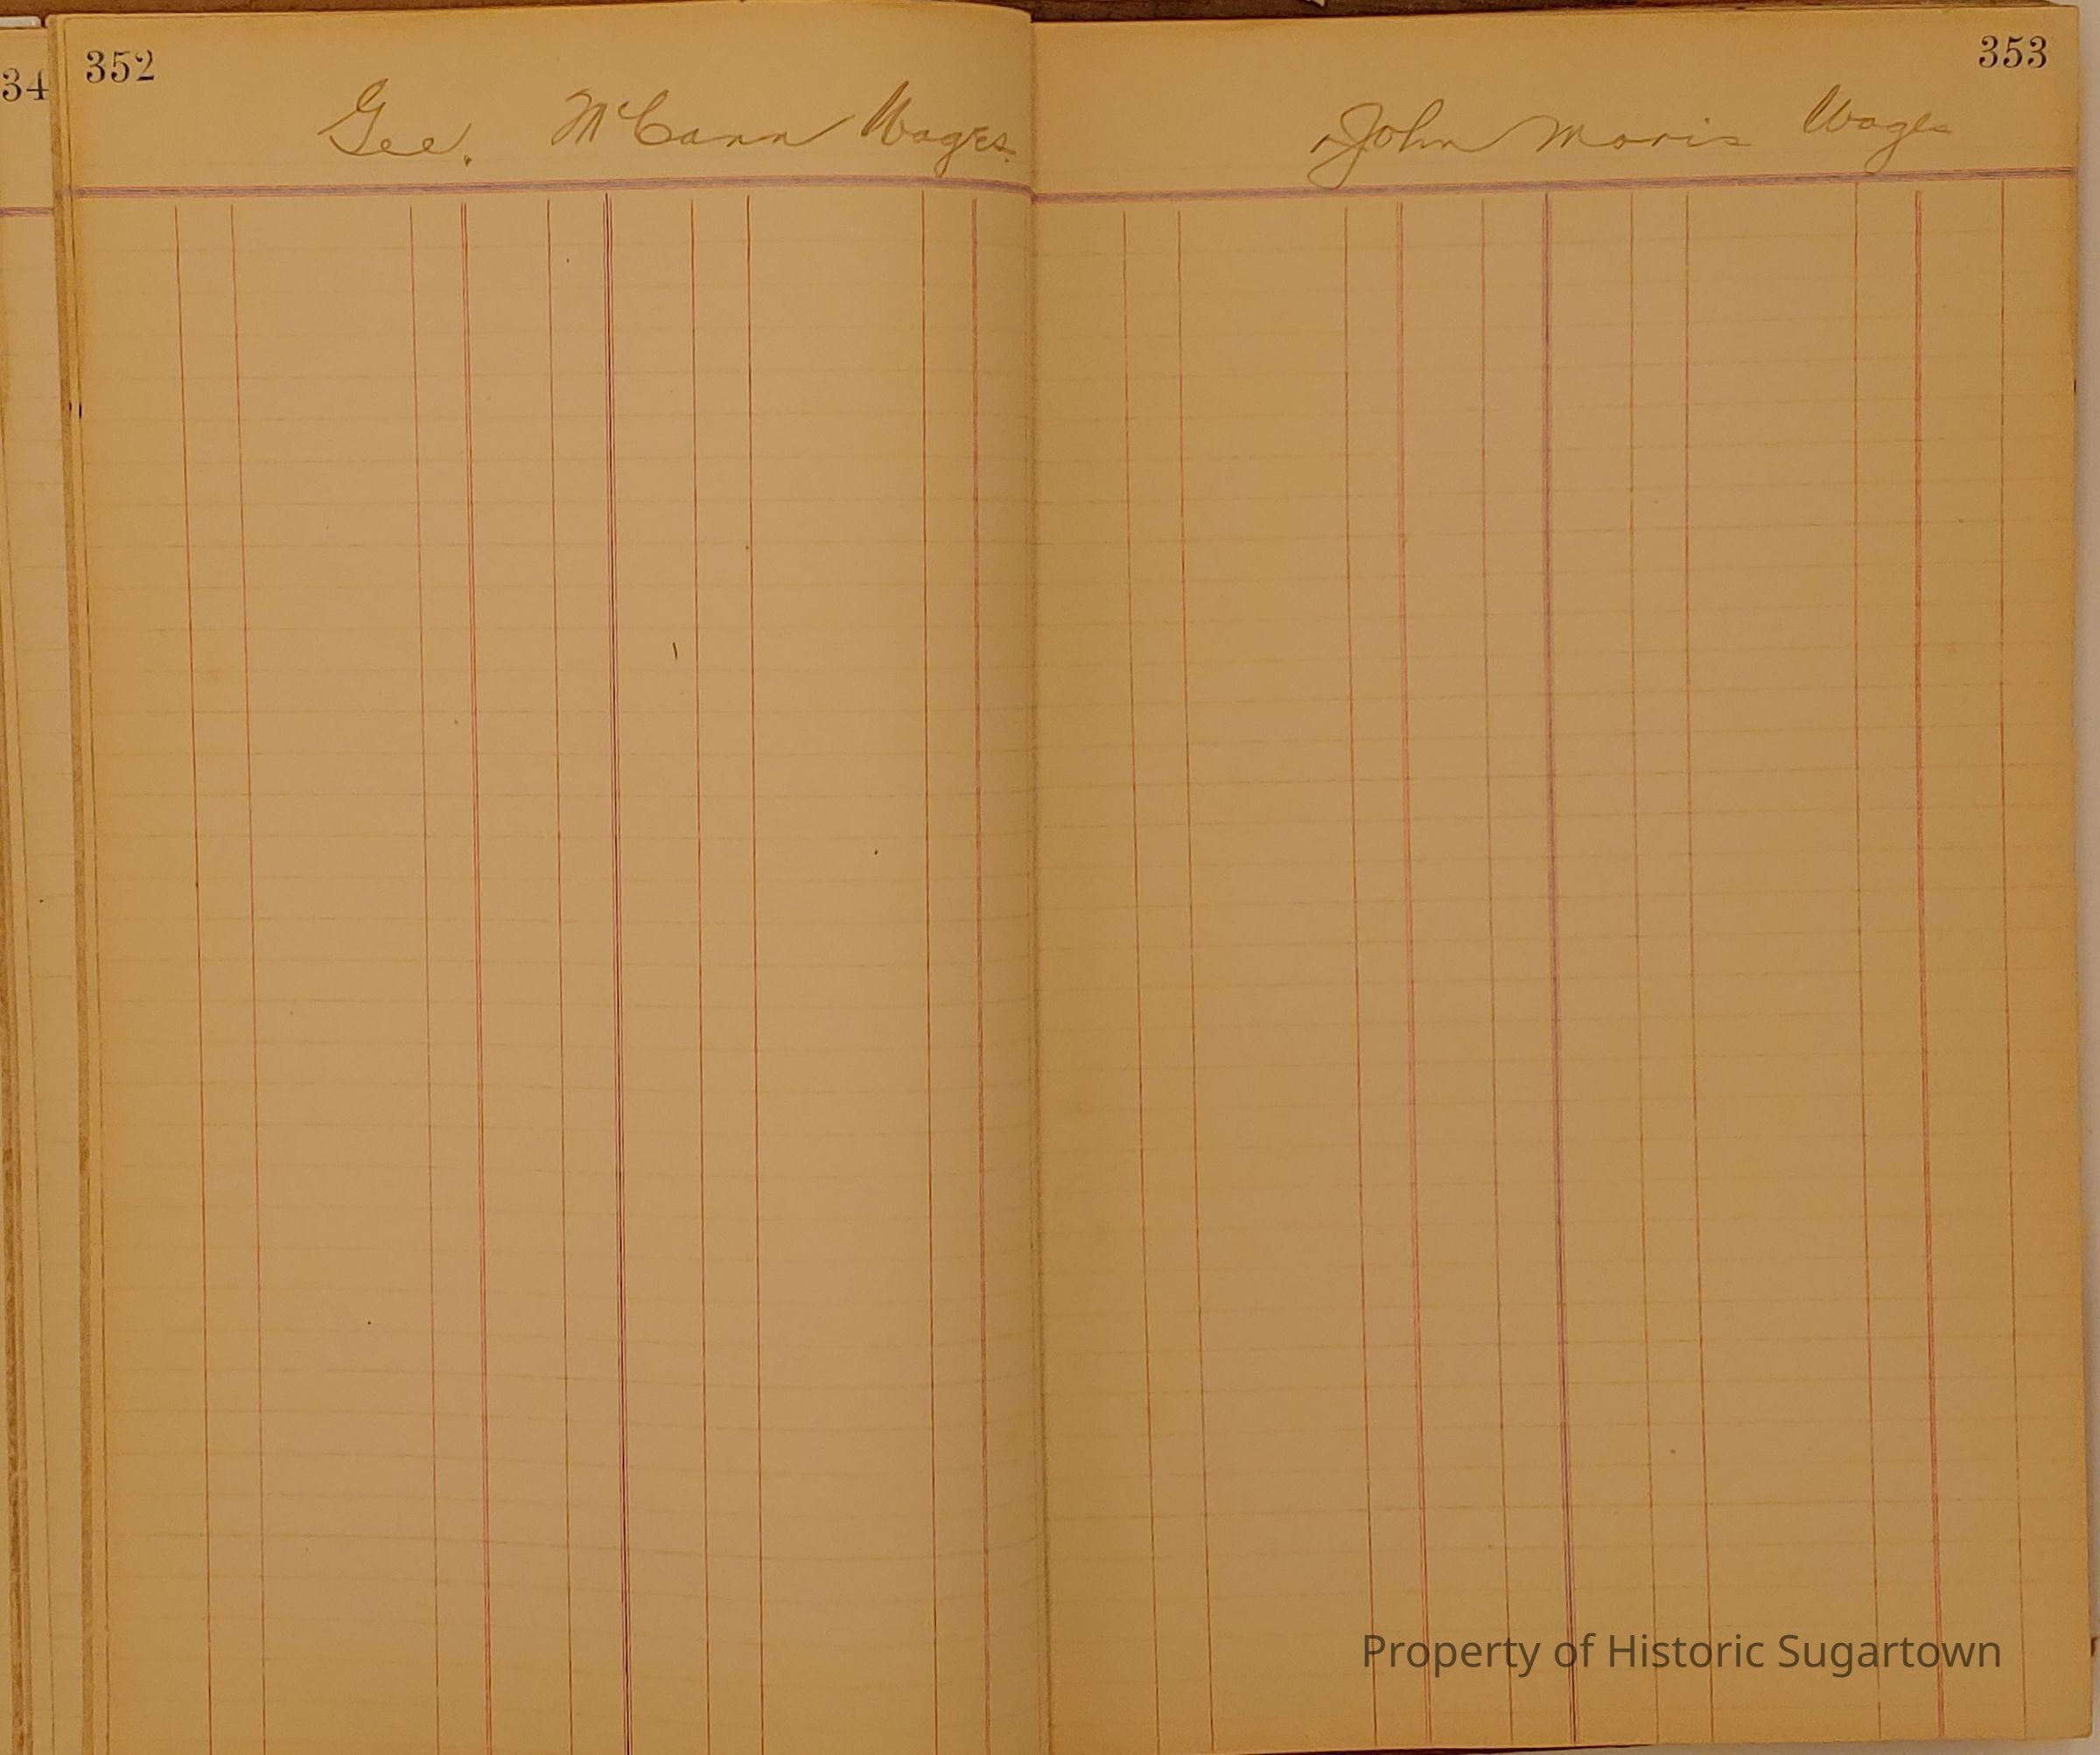 34
352
Geo. McCann Wages.
353
John Moris Wages
Property of Historic Sugartown